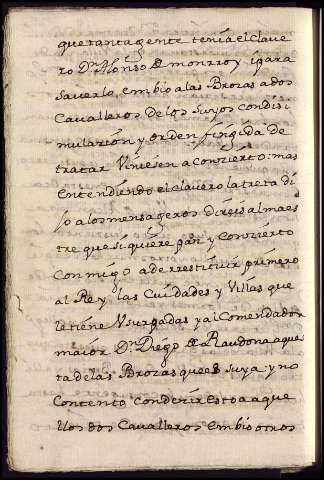 que tanta gente tenia el clave
ro Dn Alonso de monrroy ÿ para
saverlo, embio a las Brozas a dos
Cavalleros de los suyos con disi
mulazión y orden fingida de
tratar viniesen a conzierto: mas
entendiendo el clavero la treta di
jo a los mensageros direis al maes
tre que si quiere paz y conzierto
conmigo a de rrestituir primero
al Rey las Cuidades y Villas que
le tiene Usurgadas y al Comendador
maior Dn Diego de Raudona aques
ta de las Brozas que es suya: y no
contento con dezir esto a aque
llos dos Cavalleros embio otros